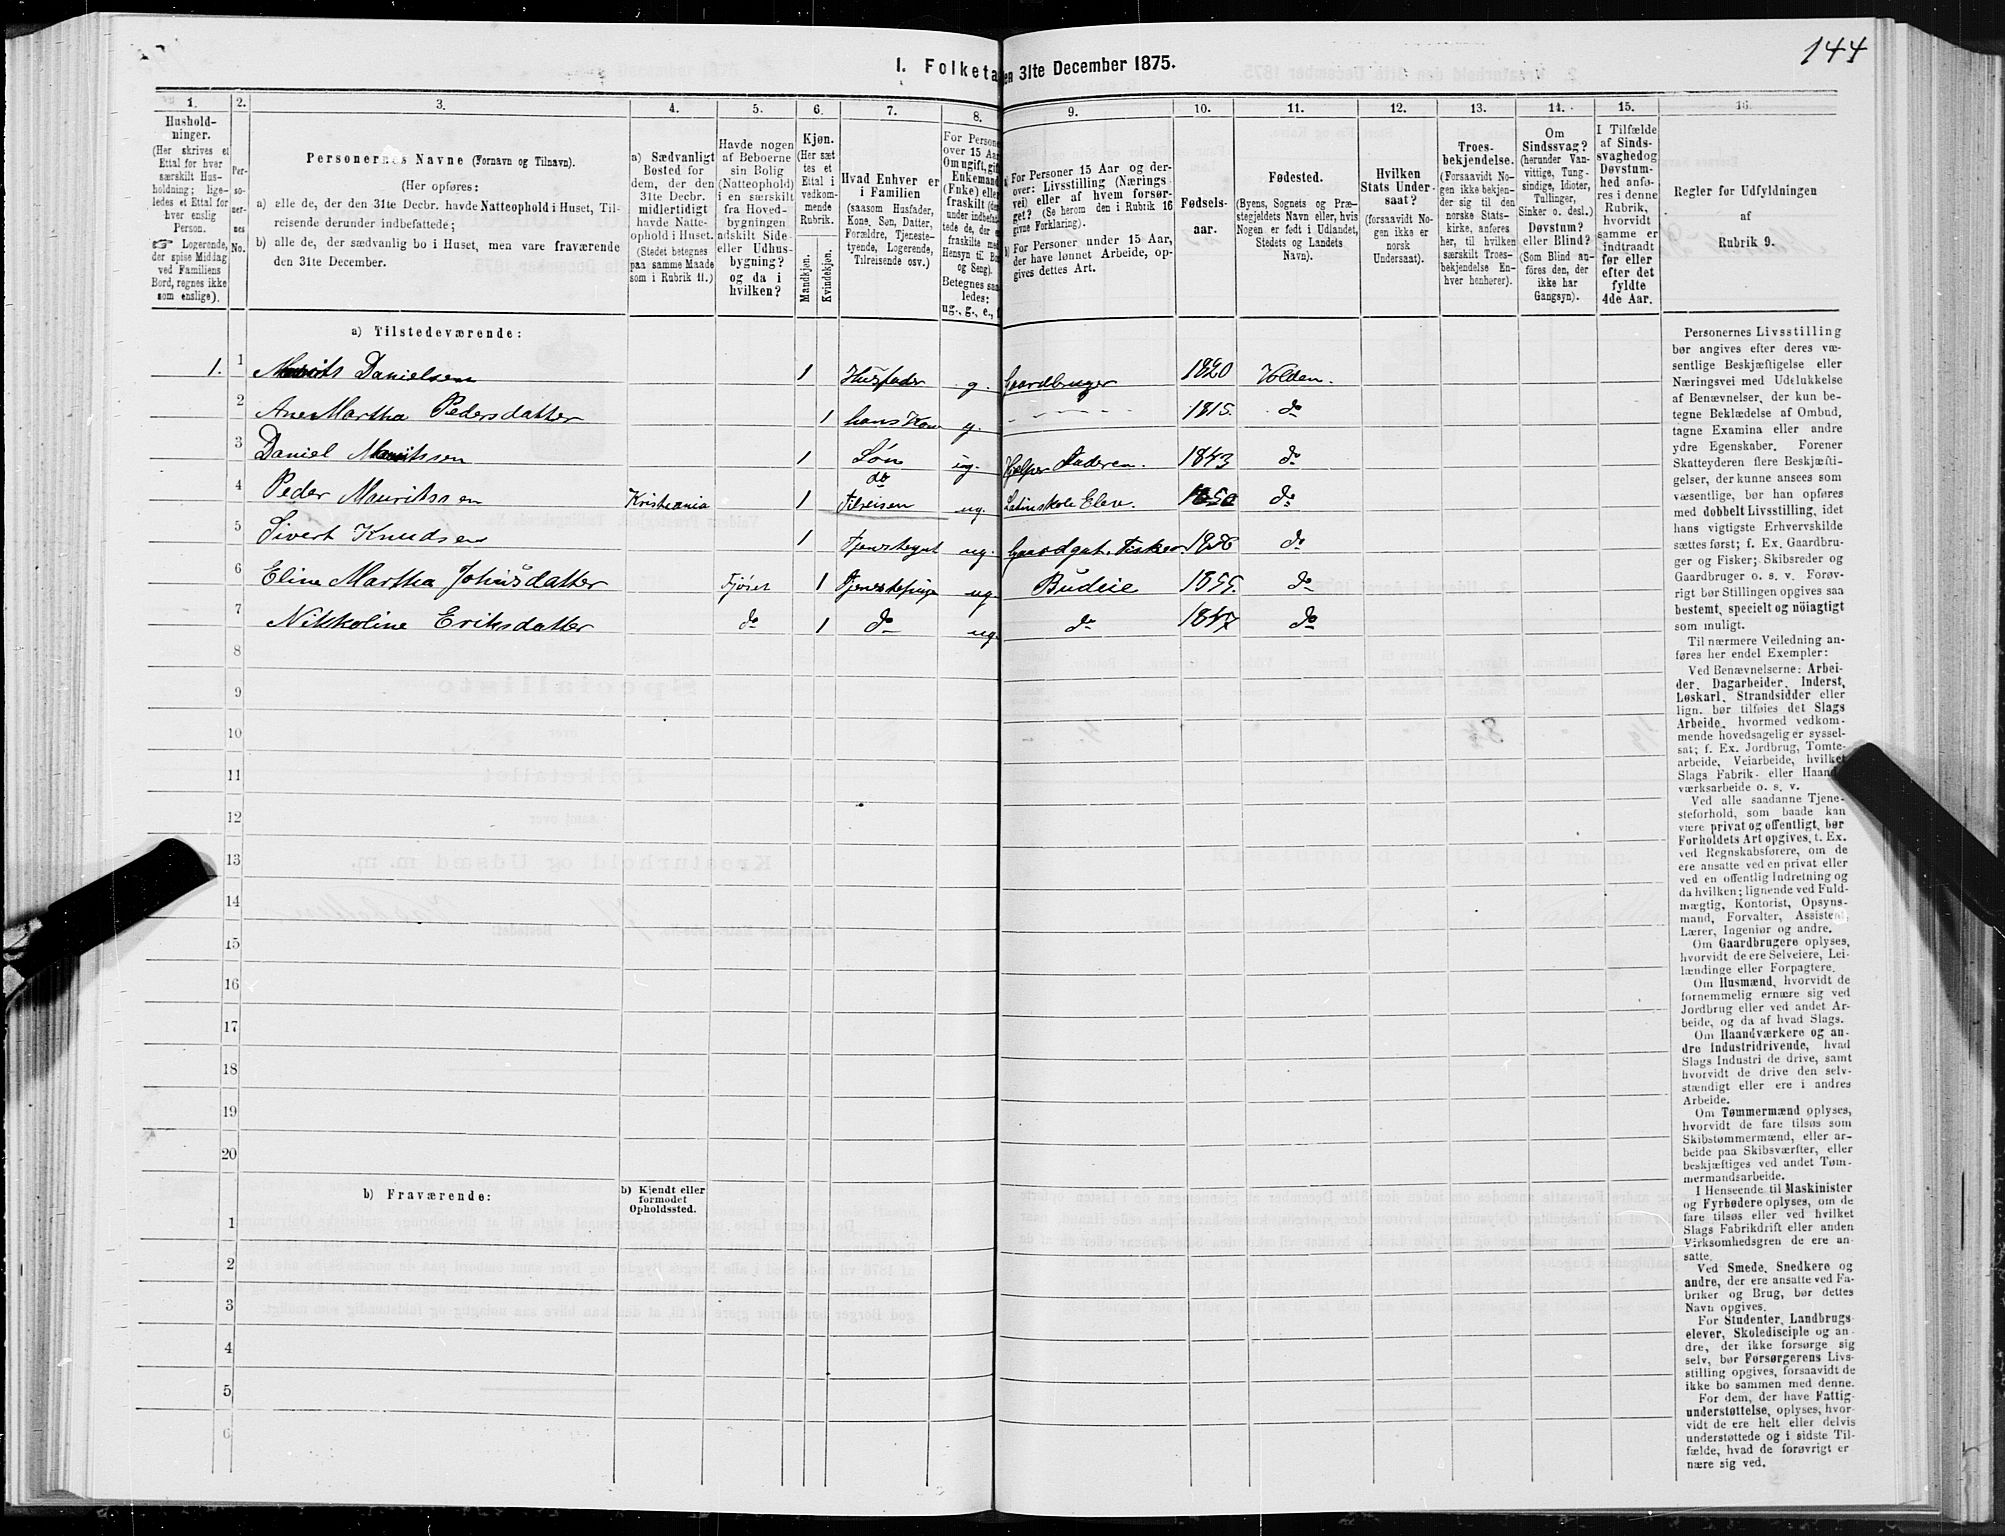 144
I. Folketa en 31te December 1875.
1. 2. 3. 4. 5. 6. 7. 8. 9. 10. 11. 12. 13. 14. 15. 16.
Hushold-
ninger.
(Her skrives et
Ettal for hver
særskilt Hus-
holdning; lige-
ledes et Ettal for
hver enslig
Person.
☞ Logerende,
der spise Middag
ved Familiens
Bord, regnes ikke
som enslige).
Per-
so-
ner-
nes
No.
Personernes Navne (Fornavn og Tilnavn).
(Her opføres:
a) alle de, der den 31te Decbr. havde Natteophold i Huset, Til-
reisende derunder indbefattede;
b) alle de, der sædvanlig bo i Huset, men vare fraværende
den 31te December.
a) Sædvanligt
Bosted for
dem, der den
31te Decbr.
midlertidigt
havde Natte-
ophold i Huset.
(Stedet betegnes
paa samme Maade
som i Rubrik 11.)
Havde nogen
af Beboerne
sin Bolig
(Natteophold)
i en særskilt
fra Hoved-
bygningen
adskilt Side-
eller Udhus-
bygning?
og da i
hvilken?
Kjøn.
(Her sæt-
tes et
Ettal i
vedkom-
mende
Rubrik.
Mandkjøn.
Kvindekjøn.
Hvad Enhver er
i Familien
(saasom Husfader,
Kone, Søn, Datter,
Forældre, Tjeneste-
tyende, Logerende,
Tilreisende osv.)
For Persone
over 15 Aar
Om ugift, gift
Enkemand
(Fnke) elle
fraskilt (de
under indbefat
tede de, der e
fraskilte med
Hensyn til Bo
og Seng).
Betegnes saa
ledes:
ug., g., e., f
a) For Personer 15 Aar og der-
over: Livsstilling (Nærings-
vei) eller af hvem forsør-
get? (Se herom den i Rubrik 16
givne Forklaring).
b) For Personer under 15 Aar,
der have lønnet Arbeide, op-
gives dettes Art.
Fødsels-
aar.
Fødested.
(Byens, Sognets og Præ-
stegjeldets Navn eller, hvis
Nogen er født i Udlandet,
Stedets og Landets
Navn).
Hvilken
Stats Under-
saat?
(forsaavidt No-
gen ikke er
norsk
Undersaat).
Troes-
bekjendelse.
(Forsaavidt No-
gen ikke bekjen-
der sig til den
norske Stats-
kirke, anføres
her, til hvilken
særskilt Troes-
bekjendelse En-
hver henhører).
Om
Sindssvag?
(herunder Van-
vittige, Tung-
sindige, Idioter,
Tullinger,
Sinker o. desl.)
Døvstum?
eller Blind?
(Som Blind an-
føres den, der
ikke har
Gangsyn).
I Tilfælde
af Sinds-
svaghedog
Døvstum-
hed anfø-
res i denne
Rubrik,
hvorvidt
samme er
indtraadt
før eller
efter det
fyldte
4de Aar.
Regler for Udfyldningen
af
Rubrik 9.
a) Tilstedeværende:
1. 1 Maurits Danielsen 1 Husfader g. Gaardbruger 1820 Volden.
2 Ane Martha Pedersdatter 1 hans Kone g. 1815. do
3 Daniel Mauritssen 1 Søn ug. Hjelper Faderen. 1843 do
4 Peder Mauritssen Kristiania 1 do Tilreisen ug. Latinskole Elev. 1850 do
5 Sivert Knudsen 1 ug. 1856 do
6 Eline Martha Johnsdatter Fjøset 1 ug. Budeie 1855. do
7 Nikkoline Eriksdatter do 1 do ug. do 1847 do
8
9
10
11
12
13
14
15
16
17
18
19
20
b) Fraværende:
b) Kjendt eller
formodet
Opholdssted.
1
2
3
4
5
6
Personernes Livsstilling
bør angives efter deres væ-
sentlige Beskjæftigelse eller
Næringsvei med Udelukkelse
af Benævnelser, der kun be-
tegne Beklædelse af Ombud,
tagne Examina eller andre
ydre Egenskaber. Forener
Skatteyderen flere Beskjæfti-
gelser, der kunne ansees som
væsentlige, bør han opføres
med dobbelt Livsstilling, idet
hans vigtigste Erhvervskilde
sættes først; f. Ex. Gaardbru-
ger og Fisker; Skibsreder og
Gaardbruger o. s. v. Forøv-
rigt bør Stillingen opgives saa
bestemt, specielt og nöiagtigt
som muligt.
Til nærmere Veiledning an-
føres her endel Exempler:
Ved Benævnelserne: Arbei-
der, Dagarbeider, Inderst,
Løskarl, Strandsidder eller
lign. bør tilføies det Slags
Arbeide, hvormed vedkom-
mende hovedsagelig er syssel-
sat; f. Ex. Jordbrug, Tomte-
arbeide, Veiarbeide, hvilket
Slags Fabrik- eller Haand-
værksarbeide o. s. v.
Ved alle saadanne Tjene-
steforhold, som baade kan
være privat og offentligt, bør
Forholdets Art opgives, t. Ex.
ved Regnskabsførere, om de
ere ansatte ved en privat eller
ved en offentlig Indretning og
da hvilken; lignende ved Fuld-
mægtig, Kontorist, Opsyns-
mand, Forvalter, Assistent,
Lærer, Ingeniør og andre.
Om Gaardbrugere oplyses,
hvorvidt de ere Selveiere, Lei-
lændinge eller Forpagtere.
Om Husmænd, hvorvidt de
fornemmelig ernære sig ved
Jordbrug eller ved andet Ar-
beide, og da af hvad Slags.
Om Haandværkere og an-
dre Industridrivende, hvad
Slags Industri de drive, samt
hvorvidt de drive den selv-
stændigt eller ere i andres
Arbeide.
Om Tømmermænd oplyses,
hvorvidt de fare tilsøs som
Skibstømmermænd, eller ar-
beide paa Skibsværfter, eller
beskjæftiges ved andet Tøm-
mermandsarbeide.
I Henseende til Maskinister
og Fyrbødere oplyses, om de
fare tilsøs eller ved hvilket
Slags Fabrikdrift eller anden
Virksomhedsgren de ere an-
satte.
Ved Smede, Snedkere og
andre, der ere ansatte ved Fa-
briker og Brug, bør dettes
Navn opgives.
For Studenter, Landbrugs-
elever, Skoledisciple og an-
dre, der ikke forsørge sig
selv, bør Forsørgerens Livs-
stilling opgives, forsaavidt de
ikke bo sammen med denne.
For dem, der have Fattig-
understøttelse, oplyses, hvor-
vidt de ere helt eller delvis
understøttede og i sidste Til-
fælde, hvad de forøvrigt er-
nære sig ved.